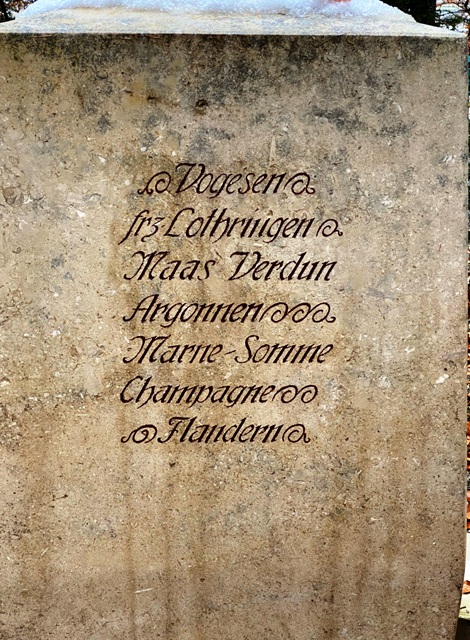 Vogesen
frz Lothringen
Maas Verdun
Argonnen
Marne-Somme
Champagne
Flandern